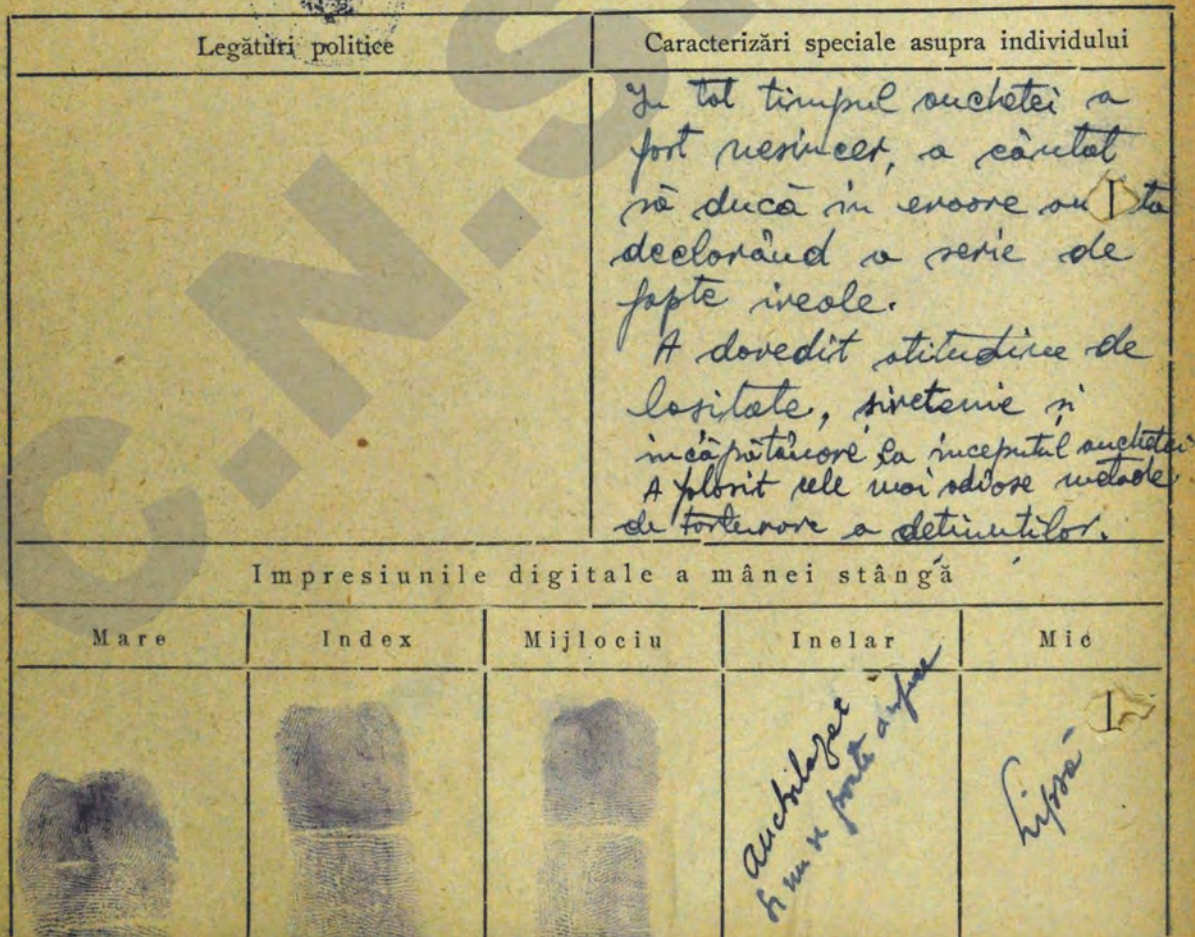 Legături politice
Caracterizări speciale asupra individului
In tot timpul anchetei a
fost nesincer, a căutat
să ducă in eroare an ta
declarând o serie de
fapte ireale.
A dovedit atitudine de
lașitate, șiretenie și
incăpățânare la inceputul anchetei
A folosit cele mai odioase metode
de torturare a deținuților.
Impresiunile digitale a mânei stângă
Mare
Index
Mijlociu
Inelar
Mic
anchilozat
și nu se poate
Lipsă
C.N.S.